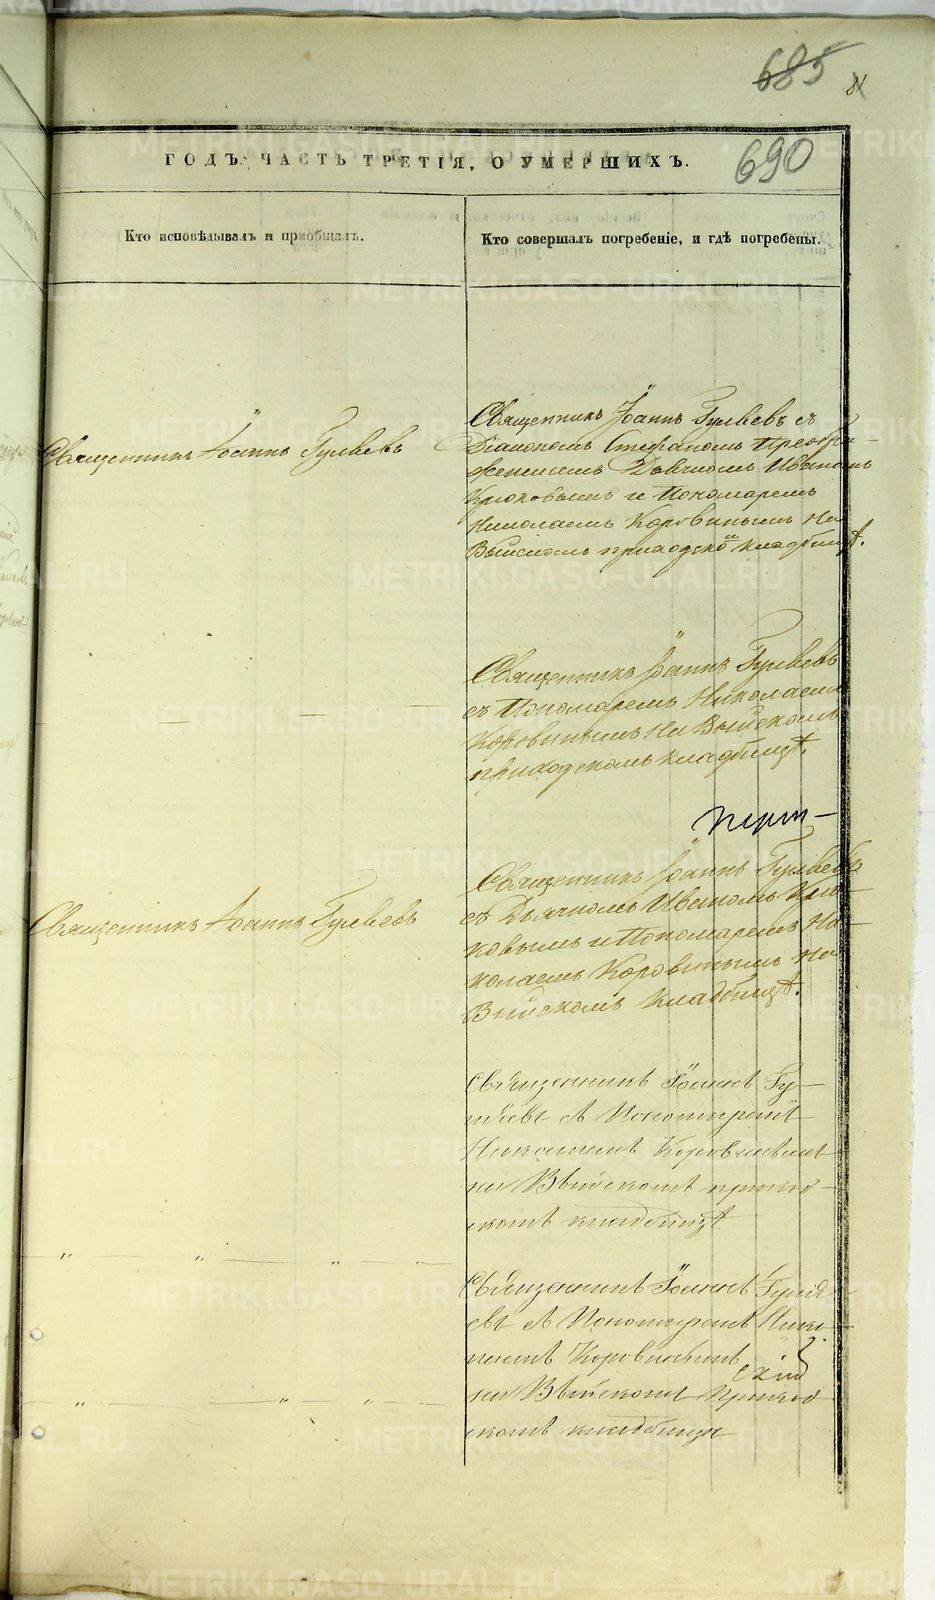 685
690
ГОДЪ. ЧАСТЬ ТРЕТІЯ, О УМЕРШИХЪ.
Кто исповѣдывалъ и пріобщалъ.
Кто совершалъ погребеніе, и гдѣ погребены.
Священникъ Іоаннъ Гуляевъ
Священникъ Іоаннъ Гуляевъ съ
Діакономъ Стефаномъ Преобра-
женскимъ Дьячкомъ Иваномъ
Крюковымъ и Пономаремъ
Николаемъ Коровинымъ На
Выйскомъ приходской кладбищѣ.
Священникъ Іоаннъ Гуляевъ
съ Пономаремъ Николаемъ
Коровинымъ На Выйскомъ
приходскомъ кладбищѣ.
Священникъ Іоаннъ Гуляевъ
Священникъ Іоаннъ Гуляевъ
съ Дьячкомъ Иваномъ Крю-
ковымъ и Пономаремъ Ни-
колаемъ Коровинымъ На
Выйскомъ Кладбищѣ.
Священникъ Іоаннъ Гу-
ляевъ съ Пономаремъ
Николаемъ Коровинымъ
на Выйскомъ приход-
скомъ кладбищѣ
Священникъ Іоаннъ Гуляе
въ съ Пономаремъ Нико
лаемъ Коровинымъ
на Выйскомъ приход
скомъ кладбищѣ
METRIKI.GASO-URAL.RU